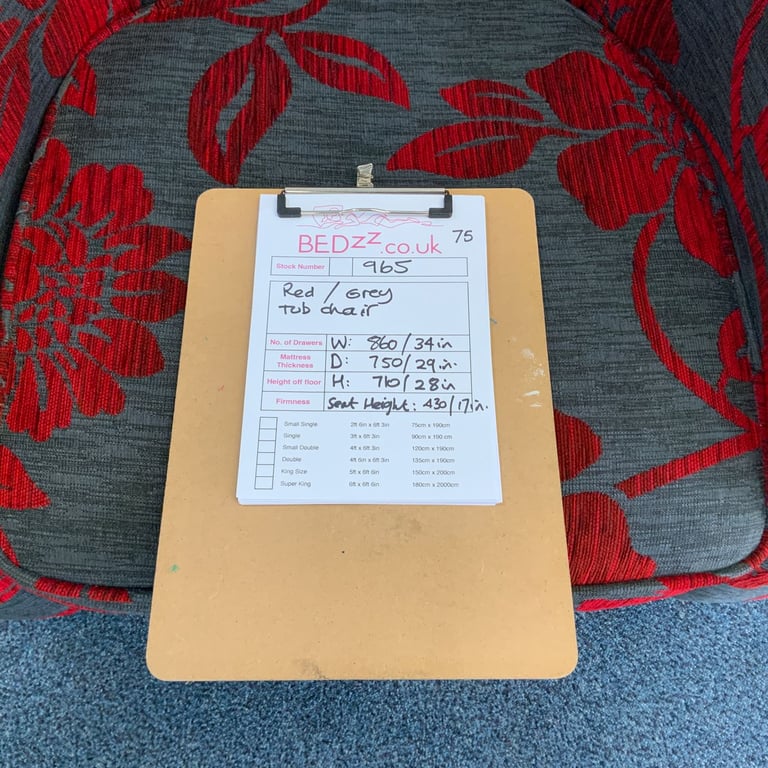 BEDzz.co.uk 75
Stock Number 965
Red / Grey
Tub chair
No. of Drawers W: 860/34in
Mattress Thickness D: 750/29in.
Height off floor H: 710/28in
Firmness Seat Height: 430/17in.
Small Single 2ft 6in x 6ft 3in 75cm x 190cm
Single 3ft x 6ft 3in 90cm x 190 cm
Small Double 4ft x 6ft 3in 120cm x 190cm
Double 4ft 6in x 6ft 3in 135cm x 190cm
King Size 5ft x 6ft 6in 150cm x 200cm
Super King 6ft x 6ft 6in 180cm x 2000cm